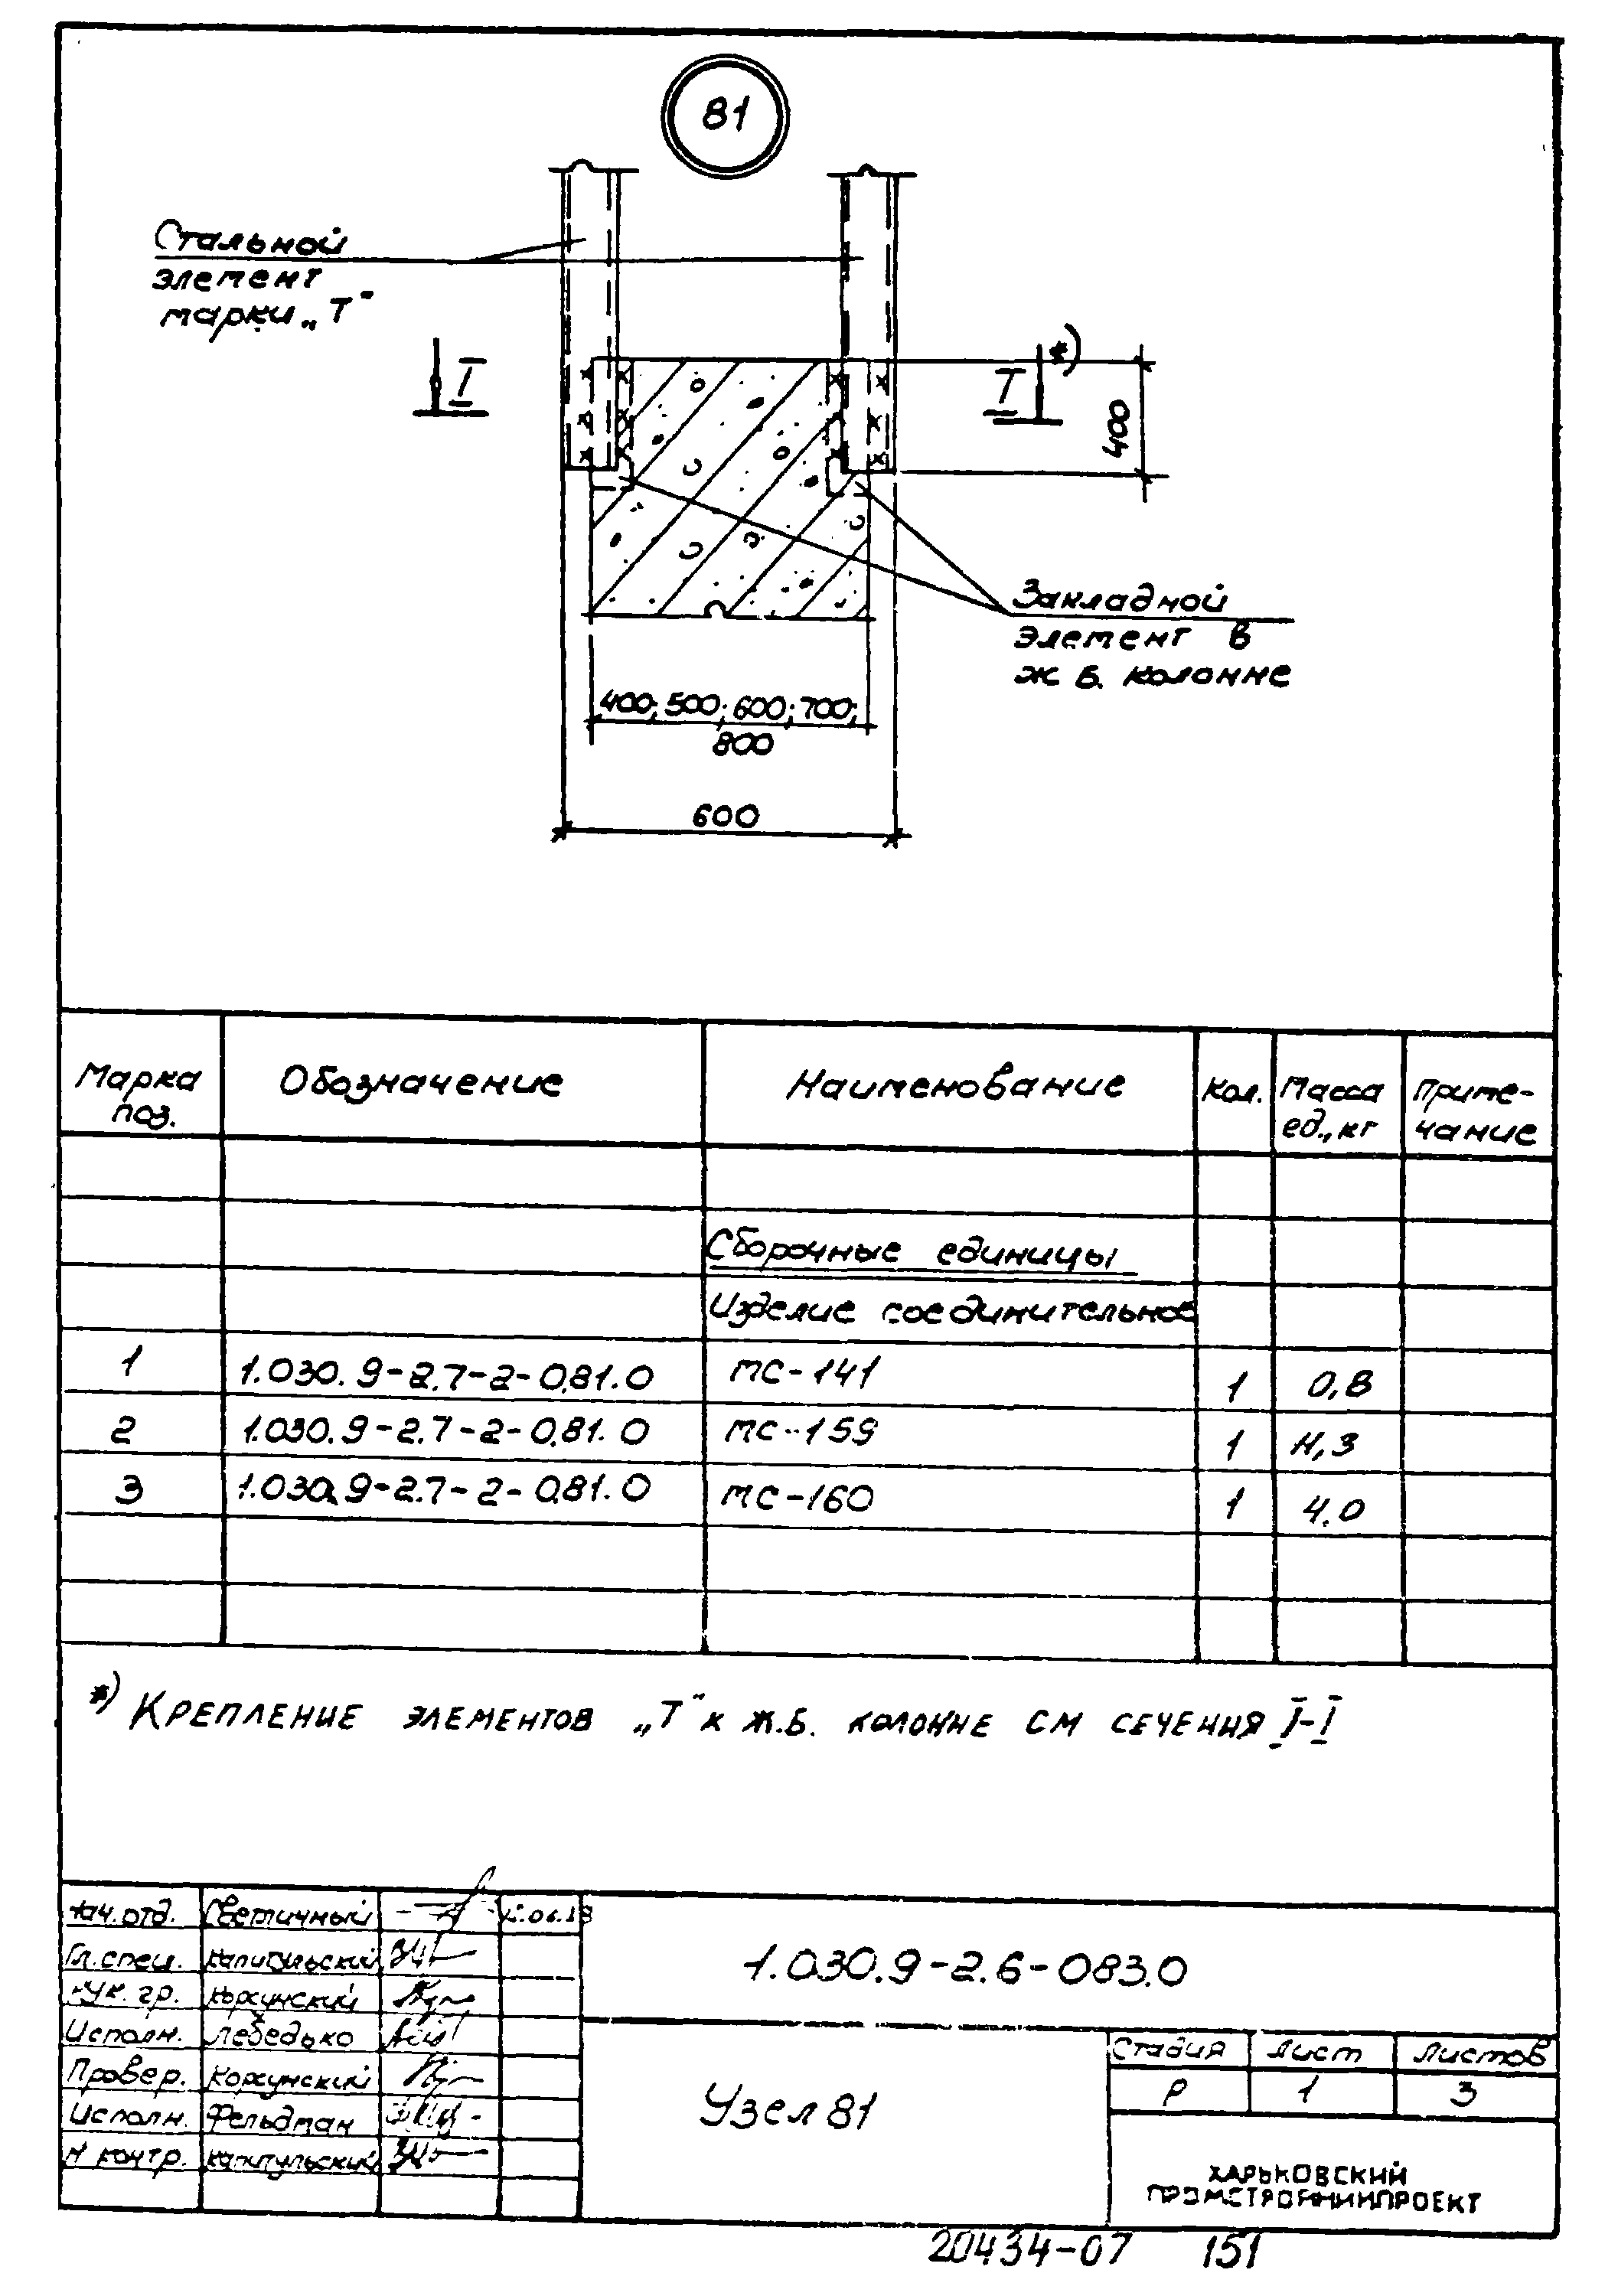 81
Стальной
элемент
марки „Т"
I
*)
I
400
Закладной
элемент в
ж б. колонне
400; 500; 600; 700;
800
600
Марка поз.
Обозначение
Наименование
Кол.
Масса ед., кг
Приме-
чание
Сборочные единицы
Изделие соединительное
1 1.030.9-2.7-2-0.81.0 МС-141 1 0,8
2 1.030.9-2.7-2-0.81.0 МС-159 1 4,3
3 1.030.9-2.7-2-0.81.0 МС-160 1 4.0
*) Крепление элементов „Т" к ж.б. колонне см сечения I-I
Нач. отд. Светичный
Гл. спец.
Рук. гр. Коржунский
Исполн. Лебедько
Провер. Коржунский
Исполн. Фельдман
Н контр.
1.030.9-2.6-083.0
Узел 81
Стадия Лист Листов
Р 1 3
ХАРЬКОВСКИЙ
ПРОМСТРОЙНИИПРОЕКТ
20434-07 151